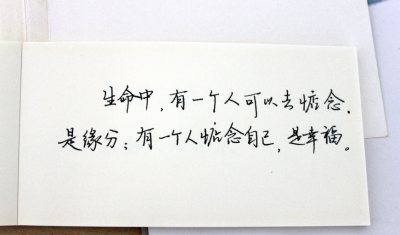 生命中,有一个人可以去惦念,
是缘分;有一个人惦念自己,是幸福。